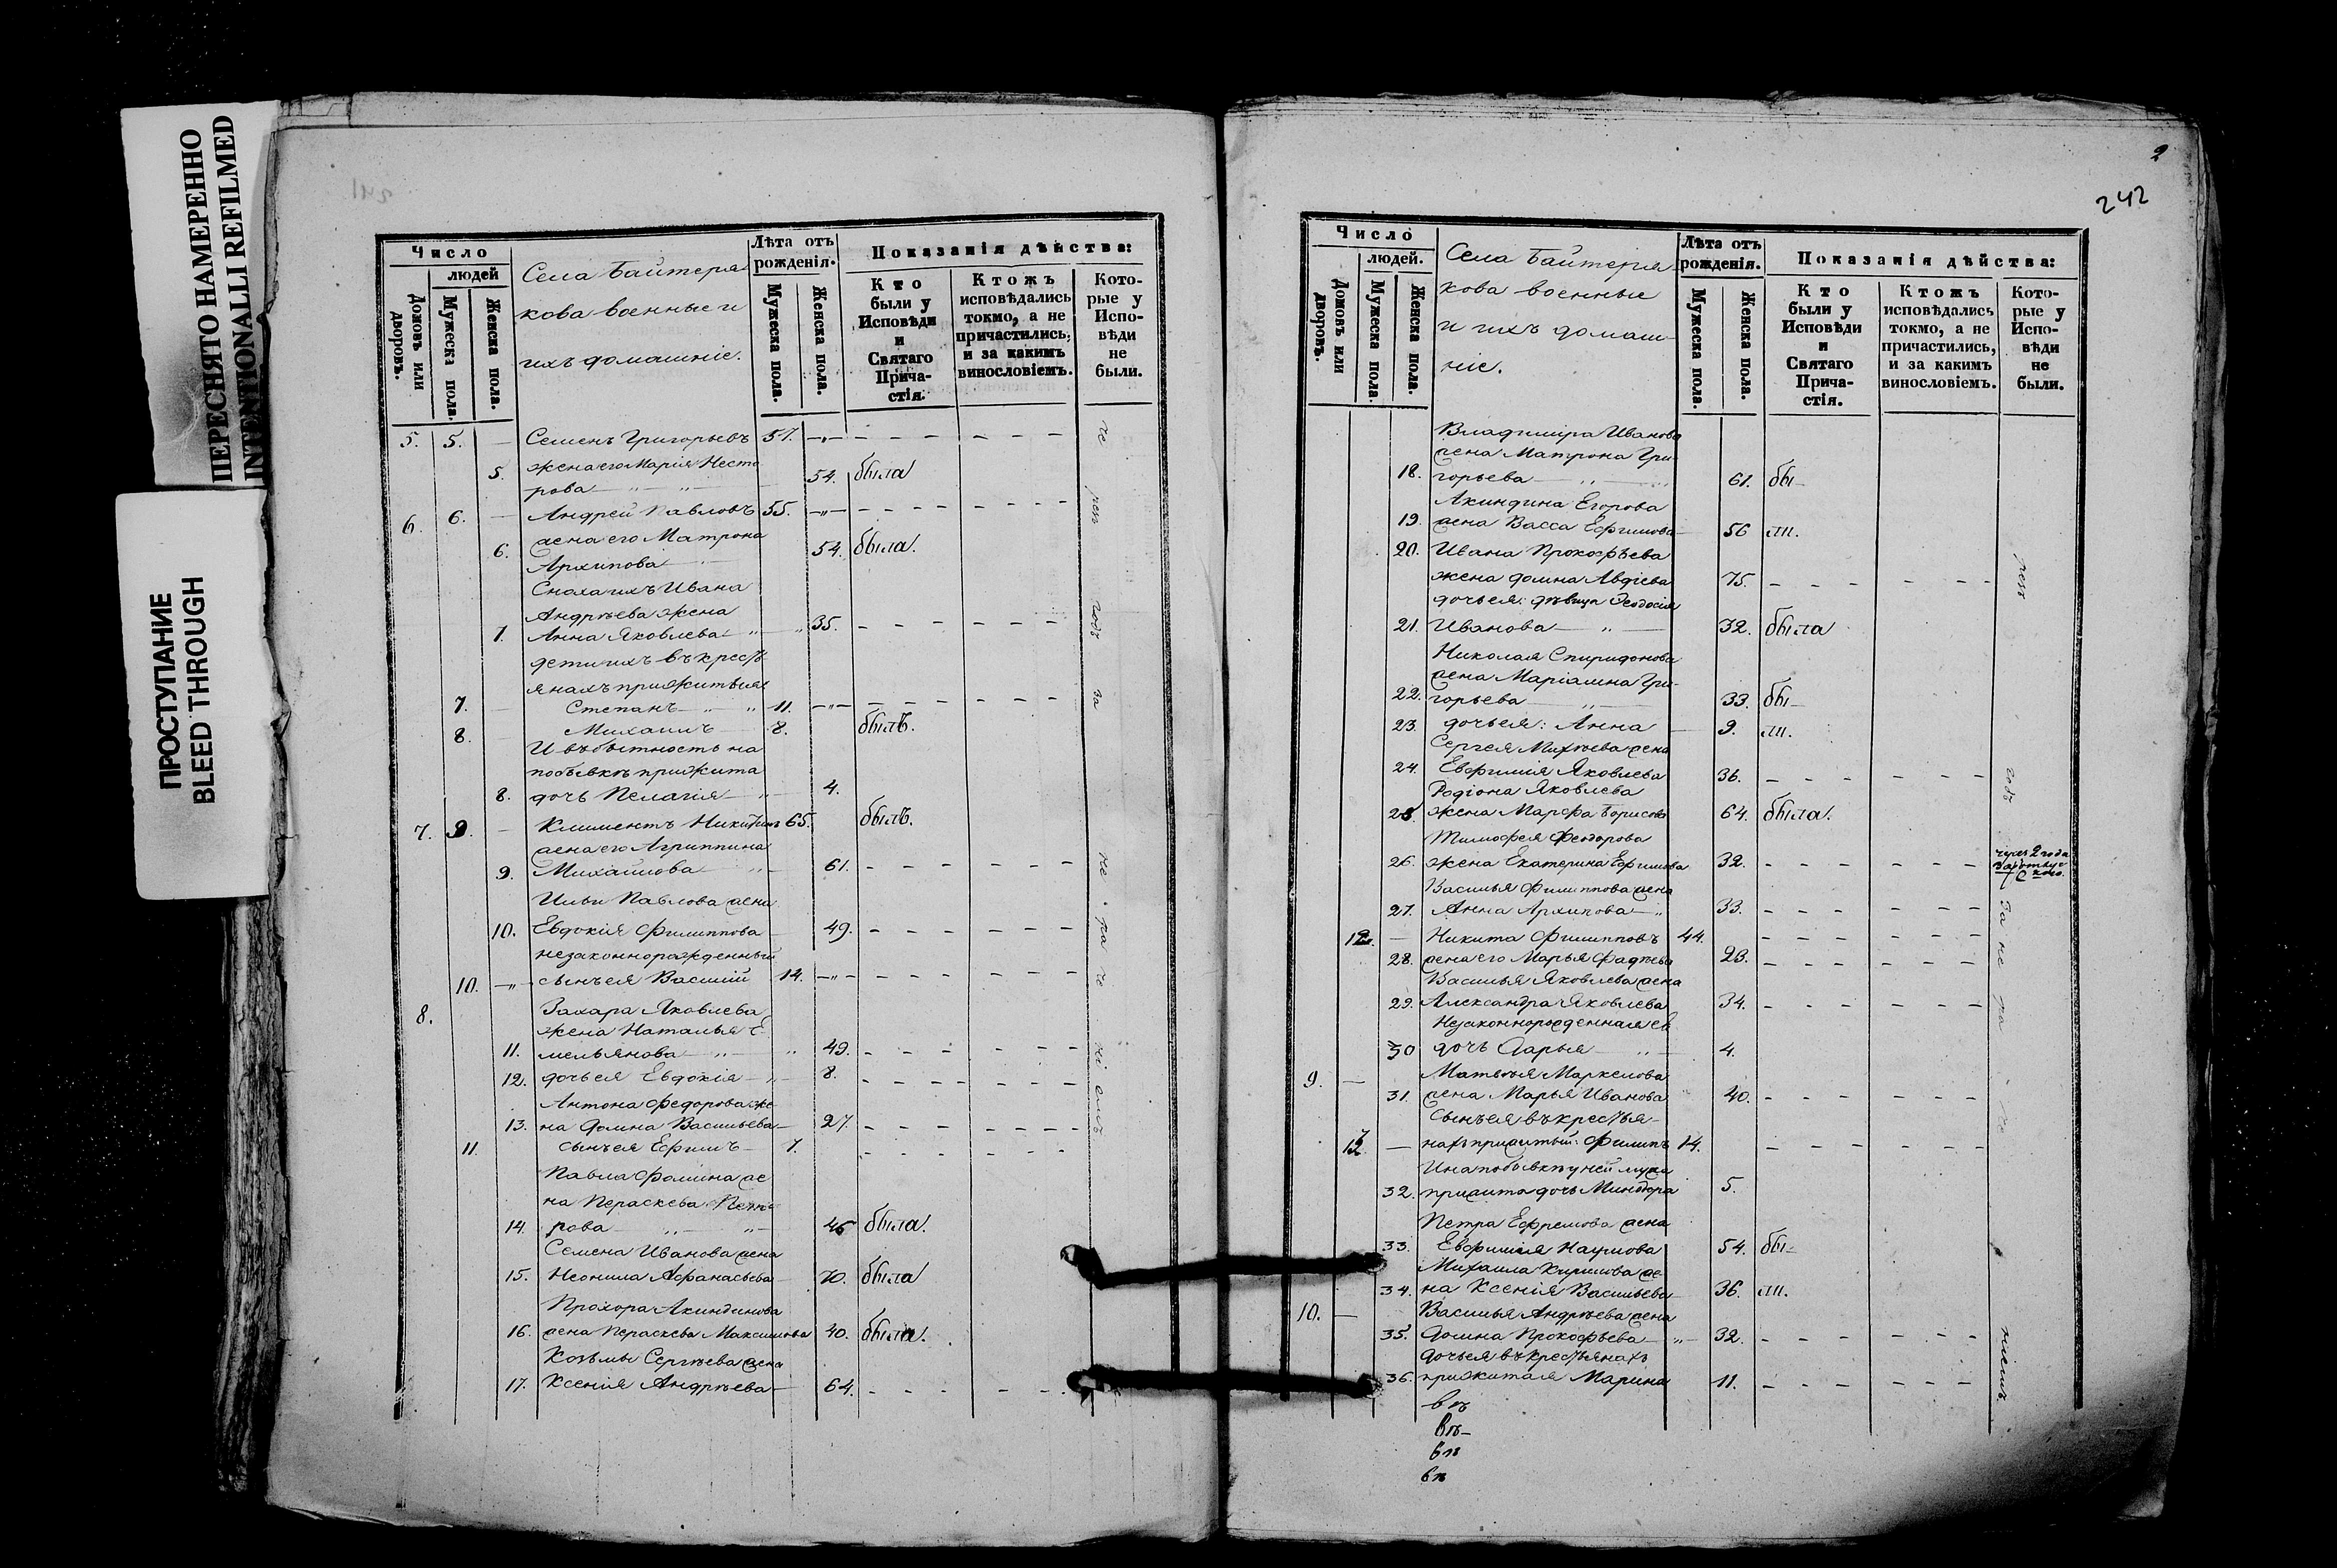 ПЕРЕСНЯТО НАМЕРЕННО
INTENTIONALLI REFILMED
ПРОСТУПАНИЕ
BLEED THROUGH
Число
людей
Домовъ или дворовъ.
Мужеска пола.
Женска пола.
Села Байтеря-
кова военные и
ихъ домашніе.
Лѣта отъ рожденія.
Мужеска пола.
Женска пола.
Показанія дѣйства:
Кто были у Исповѣди и Святаго Прича-стія.
Ктожъ исповѣдались токмо, а не причастились, и за какимъ винословіемъ.
Кото-рые у Испо-вѣди не были.
5. 5. — Семенъ Григорьевъ 57.
жена его Марія Несто
5. рова 54. была
6. 6. — Андрей Павловъ 55.
жена его Матрона
6. Архипова 54. была.
Сноха ихъ Ивана
Андрѣева жена
7. Анна Яковлева 35.
дети ихъ въ кресть
янахъ прижитыя
7. — Степанъ 11.
8. Михаилъ 8. былъ.
И въ бытность на
побывкѣ прижита
8. дочь Пелагія 4.
7. 9. — Климентъ Никитинъ 65. былъ.
жена его Агриппина
9. Михайлова 61.
Ильи Павлова жена
10. Евдокія Филиппова 49.
незаконнорожденный
10. сынъ ея Василій 14.
8. Захара Яковлева
жена Наталья Е
11. мельянова 49.
12. дочь ея Евдокія 8.
Антона Федорова же
13. на Домна Васильева 27.
11. сынъ ея Ефимъ 7.
Павла Фомина же
на Пераскева Пет
14. рова 46 была.
Семена Иванова жена
15. Неонила Афанасьева 70. была
Прохора Акиндинова
16. жена Пераскева Максимова 40. была.
Козьмы Сергѣева жена
17. Ксенія Андрѣева 64.
2
242
Число
людей.
Домовъ или дворовъ.
Мужеска пола.
Женска пола.
Села Байтеря-
кова военные
и ихъ домаш-
ніе.
Лѣта отъ рожденія.
Мужеска пола.
Женска пола.
Показанія дѣйства:
Кто были у Исповѣди и Святаго Прича-стія.
Ктожъ исповѣдались токмо, а не причастились, и за какимъ винословіемъ.
Кото-рые у Испо-вѣди не были.
Владиміра Иванова
жена Матрона Гри-
18. горьева 61. бы-
Акиндина Егорова
19. жена Васса Ефимова 56 ли.
20. Ивана Прокофьева
жена Домна Авдіева 75.
дочь ея: дѣвица Ѳеодосія
21. Иванова 32. была
Николая Спиридонова
жена Маріамна Гри-
22. горьева 33. бы-
23. дочь ея: Анна 9. ли.
Сергея Михѣева жена
24. Евфимія Яковлева 36.
Родіона Яковлева
25. жена Марфа Борисова 64. была.
Тимофея Феодорова
26. жена Екатерина Ефимова 32. через 2 года
Василья Филиппова жена
27. Анна Архипова 33.
12. — Никита Филипповъ 44.
28. жена его Марья Фадѣева 23.
Василья Яковлева жена
29. Александра Яковлева 34.
Незаконнорожденная ея
30 дочь Дарья 4.
9. — Матвѣя Маркелова
31. жена Марья Иванова 40.
сынъ ея въ крестья-
13. — нахъ прижитый: Филипъ 14.
И на побывкѣ у ней мужа
32. прижита дочь Минодора 5.
Петра Ефремова жена
33. Евфимія Наумова 54. бы-
Михаила Кирилова же-
34. на Ксенія Васильева 36. ли.
10. — Василья Андрѣева жена
35. Домна Прокофьева 32.
дочь ея въ крестьянахъ
36. прижитая Марина 11.
вѣ
вѣ-
вѣ
вѣ